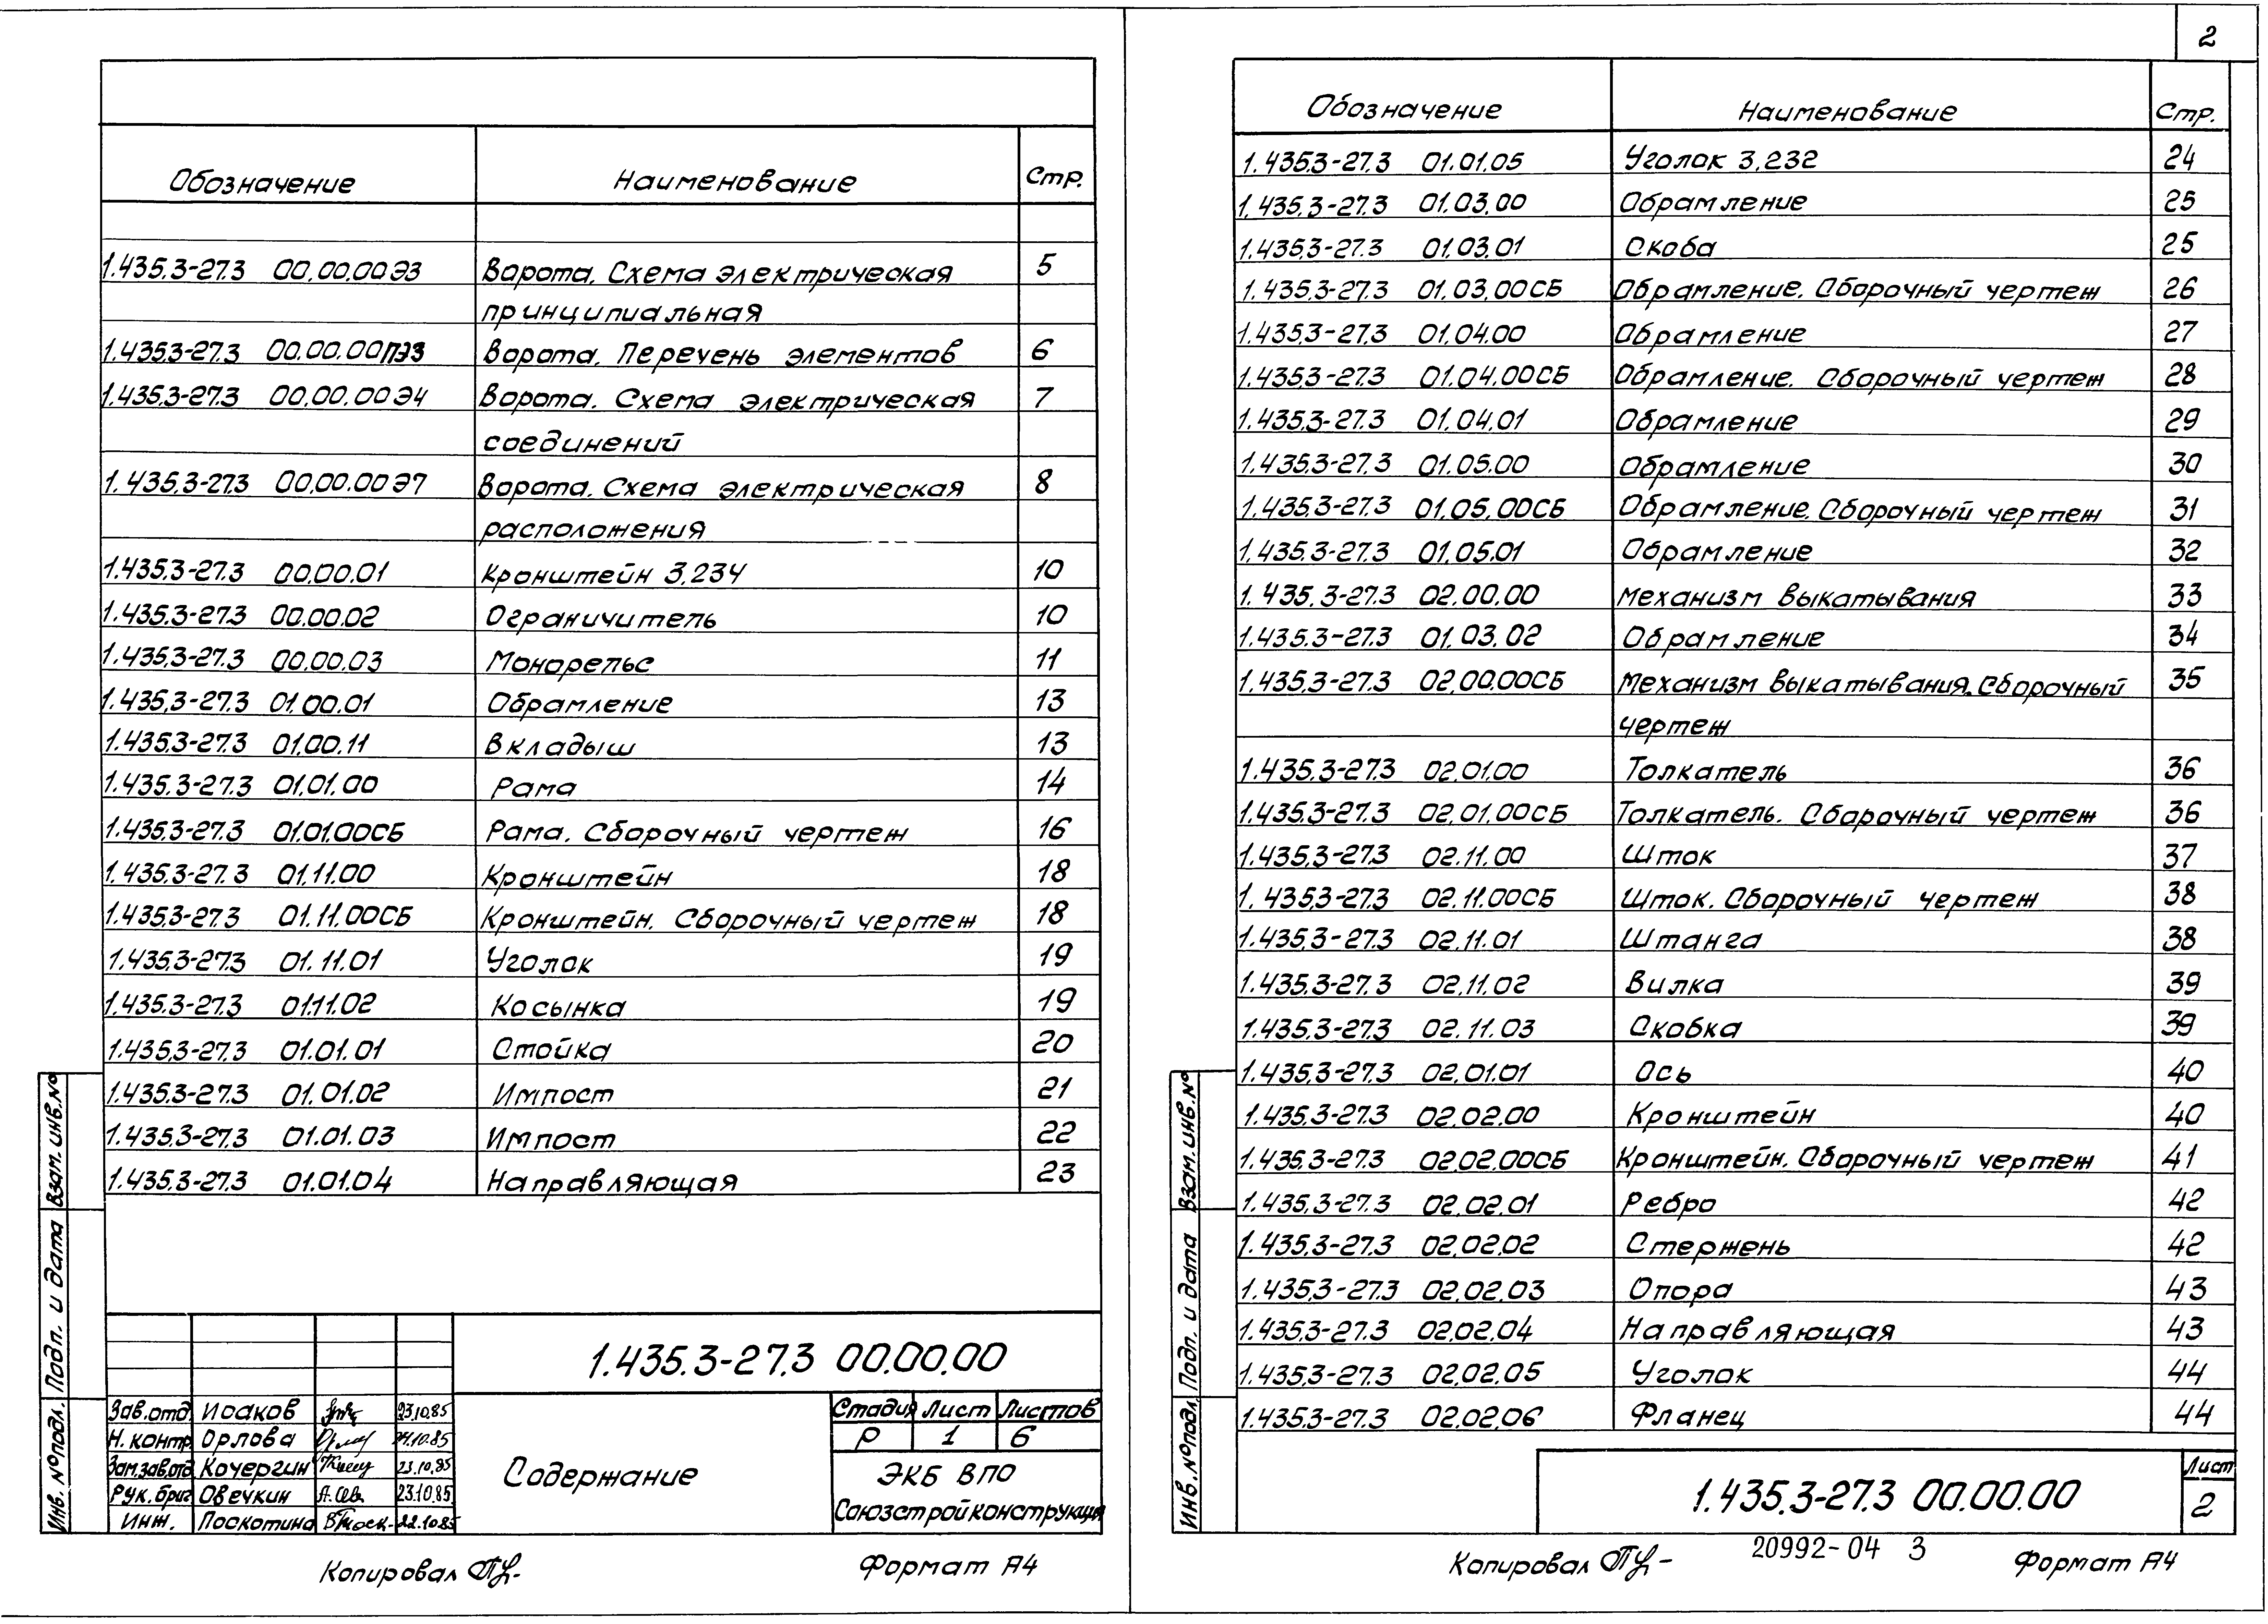 Обозначение Наименование Стр.
1.435.3-27.3 00.00.00Э3 Ворота. Схема электрическая 5
принципиальная
1.435.3-27.3 00.00.00ПЭ3 Ворота. Перечень элементов 6
1.435.3-27.3 00.00.00Э4 Ворота. Схема электрическая 7
соединений
1.435.3-27.3 00.00.00Э7 Ворота. Схема электрическая 8
расположения
1.435.3-27.3 00.00.01 Кронштейн 3.234 10
1.435.3-27.3 00.00.02 Ограничитель 10
1.435.3-27.3 00.00.03 Монорельс 11
1.435.3-27.3 01.00.01 Обрамление 13
1.435.3-27.3 01.00.11 Вкладыш 13
1.435.3-27.3 01.01.00 Рама 14
1.435.3-27.3 01.01.00СБ Рама. Сборочный чертеж 16
1.435.3-27.3 01.11.00 Кронштейн 18
1.435.3-27.3 01.11.00СБ Кронштейн. Сборочный чертеж 18
1.435.3-27.3 01.11.01 Уголок 19
1.435.3-27.3 01.11.02 Косынка 19
1.435.3-27.3 01.01.01 Стойка 20
1.435.3-27.3 01.01.02 Импост 21
1.435.3-27.3 01.01.03 Импост 22
1.435.3-27.3 01.01.04 Направляющая 23
Инв. №подл. Подп. и дата Взам. инв. №
1.435.3-27.3 00.00.00
Зав.отд. Исаков 23.10.85
Н. контр. Орлова 24.10.85
Зам.зав.отд Кочергин 23.10.85
Рук. бриг. Овечкин 23.10.85
Инж. Поскотина 22.10.85
Содержание
Стадия Лист Листов
Р 1 6
ЭКБ ВПО
Союзстройконструкция
Копировал Формат А4
2
Обозначение Наименование Стр.
1.435.3-27.3 01.01.05 Уголок 3.232 24
1.435.3-27.3 01.03.00 Обрамление 25
1.435.3-27.3 01.03.01 Скоба 25
1.435.3-27.3 01.03.00СБ Обрамление. Сборочный чертеж 26
1.435.3-27.3 01.04.00 Обрамление 27
1.435.3-27.3 01.04.00СБ Обрамление. Сборочный чертеж 28
1.435.3-27.3 01.04.01 Обрамление 29
1.435.3-27.3 01.05.00 Обрамление 30
1.435.3-27.3 01.05.00СБ Обрамление. Сборочный чертеж 31
1.435.3-27.3 01.05.01 Обрамление 32
1.435.3-27.3 02.00.00 Механизм выкатывания 33
1.435.3-27.3 01.03.02 Обрамление 34
1.435.3-27.3 02.00.00СБ Механизм выкатывания. Сборочный 35
чертеж
1.435.3-27.3 02.01.00 Толкатель 36
1.435.3-27.3 02.01.00СБ Толкатель. Сборочный чертеж 36
1.435.3-27.3 02.11.00 Шток 37
1.435.3-27.3 02.11.00СБ Шток. Сборочный чертеж 38
1.435.3-27.3 02.11.01 Штанга 38
1.435.3-27.3 02.11.02 Вилка 39
1.435.3-27.3 02.11.03 Скобка 39
1.435.3-27.3 02.01.01 Ось 40
1.435.3-27.3 02.02.00 Кронштейн 40
1.435.3-27.3 02.02.00СБ Кронштейн. Сборочный чертеж 41
1.435.3-27.3 02.02.01 Ребро 42
1.435.3-27.3 02.02.02 Стержень 42
1.435.3-27.3 02.02.03 Опора 43
1.435.3-27.3 02.02.04 Направляющая 43
1.435.3-27.3 02.02.05 Уголок 44
1.435.3-27.3 02.02.06 Фланец 44
Инв. №подл. Подп. и дата Взам. инв. №
1.435.3-27.3 00.00.00
Лист
2
20992-04 3
Копировал Формат А4